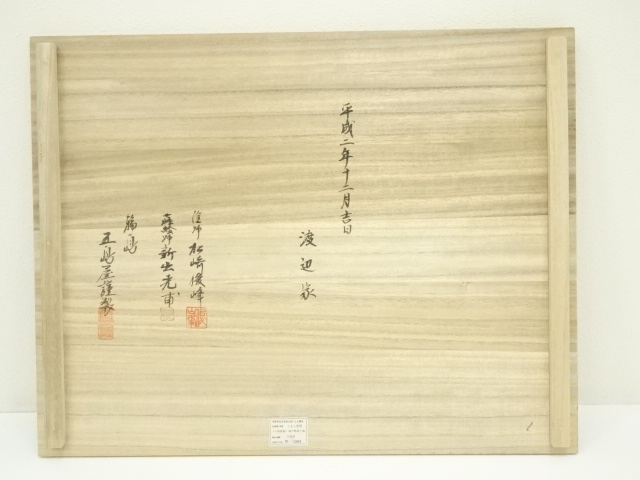 平成二年十二月吉日
渡辺家
塗師 松崎俊峰
蒔絵師 新出光甫
輪島
五島屋謹製